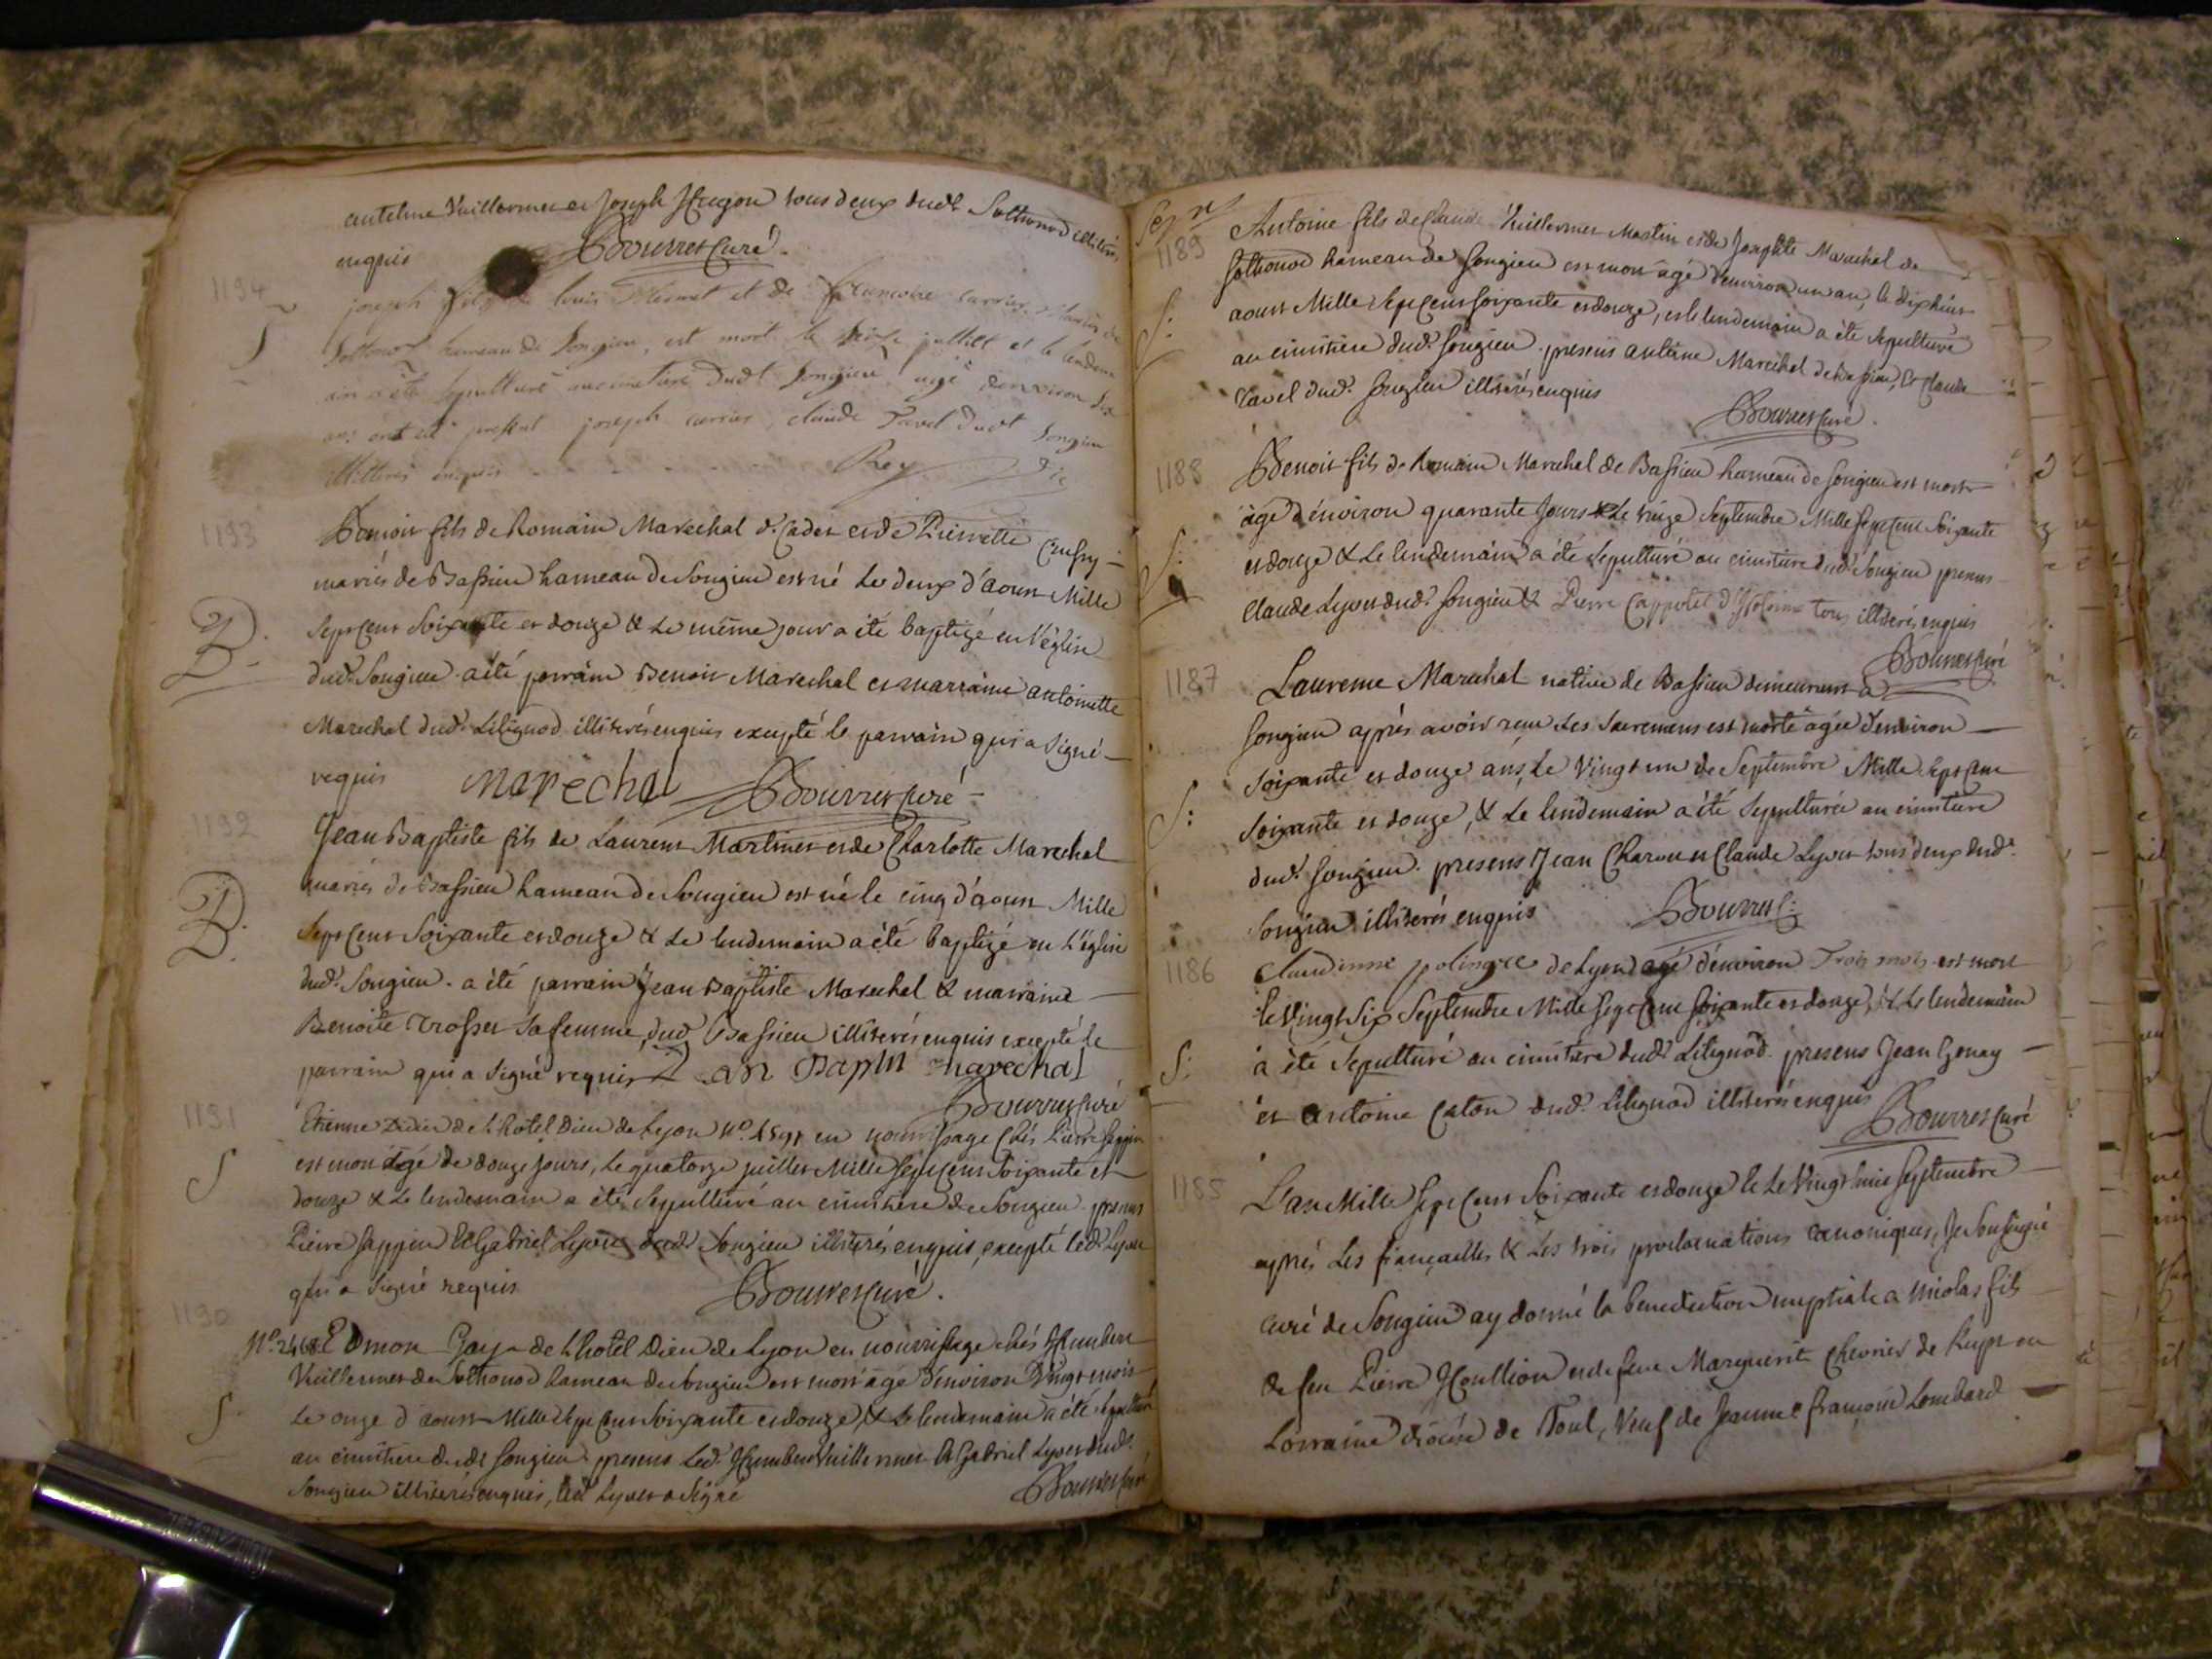 anthelme Vuillermet et Joseph Hugon tous deux dudt Sothonod illiterés
enquis Bourret Curé.
1194
joseph fils de louis et de françoise carrier mariés de
S
Sothonod hameau de Songieu, est mort le juillet et le lendem
ain a été sepulturé au cimetiere dudt Songieu agé d'environ
ans ont été present joseph carrier, claude Tavel dudt Songieu
illitteres enquis Rey Vic
1193
Benoit fils de Romain Marechal d. Cadet et de Pierrette
mariés de Bassieu hameau de Songieu est né le deux d'aoust Mille
B.
Sept Cent Soixante et douze & Le même jour a été baptizé en l'église
dud. Songieu a été parrain Benoit Marechal et marraine antoinette
Marechal dud. Lilignod illiterés enquis excepté le parrain qui a signé
requis marechal Bourret Curé
1192
Jean Baptiste fils de Laurent Martinet et de Charlotte Marechal
mariés de Bassieu hameau de Songieu est né le cinq d'aoust Mille
B.
Sept Cent Soixante et douze & Le lendemain a été baptizé en L'église
dud. Songieu. a été parrain Jean Baptiste Marechal & marraine
Benoite Trosset sa femme dud. Bassieu illiterés enquis excepté le
parrain qui a signé requis marechal
Bourret Curé
1191
Etienne Didier de L'hotel Dieu de Lyon No. en nourrissage chés Pierre Sappin
S
est mort agé de douze jours, Le quatorze juillet Mille Sept Cent Soixante et
douze & Le lendemain a été Sepulturé au cimetiere de Songieu. presens
Pierre Sappin & Gabriel Lyvet dud. Songieu illiterés enquis, excepté led. Lyvet
qui a signé requis Bourret Curé.
1190
No. 2468 Edmon Gay de L'hotel Dieu de Lyon en nourrissage chés Humbert
Vuillermet de Sothonod hameau de Songieu est mort agé d'environ Vingt mois
S
Le onze d'aoust Mille Sept Cent Soixante et douze, & Le lendemain a été sepulturé
au cimetiere dudt Songieu. presens Led. Humbert Vuillermet & Gabriel Lyvet dud.
Songieu illiterés enquis, led Lyvet a signé Bourret Curé
1189
Antoine fils de Claude Vuillermet Martin et de Josephte Marechal de
Sothonod hameau de Songieu est mort agé d'environ un an, le dixhuit
S:
aoust Mille Sept Cent Soixante et douze, et le lendemain a été sepulturé
au cimetiere dud. Songieu. presens antelme Marechal de Bassieu, & Claude
Tavel dud. Songieu illiterés enquis
Bourret Curé.
1188
Benoit fils de Romain Marechal de Bassieu hameau de Songieu est mort
agé d'environ quarante Jours Le treize Septembre Mille Sept Cent Soixante
S:
et douze & Le lendemain a été Sepulturé au cimetiere dud. Songieu presens
Claude Lyvet dud. Songieu & Pierre Cappotet tous illiterés enquis
Bourret Curé
1187
Laurence Marechal native de Bassieu demeurant a
Songieu aprés avoir reçu Les Sacremens est morte agée d'environ
Soixante et douze ans, Le Vingt un de Septembre Mille Sept Cent
S:
Soixante et douze, & Le lendemain a été Sepulturée au cimetiere
dud. Songieu. presens Jean Charvet et Claude Lyvet tous deux dud.
Songieu illiterés enquis Bourret C:
1186
Claudinne polingre de Lyon agé d'environ Trois mois est mort
le Vingt Six Septembre Mille Sept Cent Soixante et douze, & Le lendemain
S:
a été Sepulturé au cimetiere dud. Lilignod. presens Jean Genay
et Antoine Caton dud. Lilignod illiterés enquis
Bourret Curé
1185
L'an Mille Sept Cent Soixante et douze le Le Vingt huit Septembre
aprés Les fiançailles & Les trois proclamations canoniques, Je Soussigné
curé de Songieu ay donné la benediction nuptiale a nicolas fils
de feu Pierre Houllion et de feue Marguerite Chevrier de Rupt en
Lorraine diocése de Toul, Veuf de Jeanne françoise Lombard